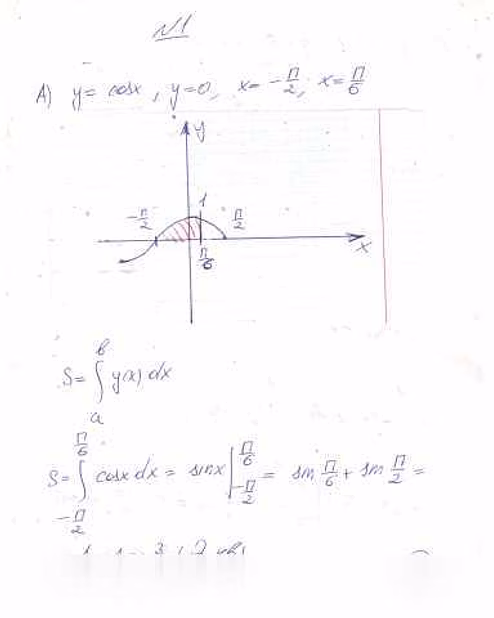 №1
А) y = cosx, y=0, x= -π/2, x= π/6
y
-π/2 1 π/2
π/6 x
S= ∫ₐᵇ y(x) dx
S= ∫_{-π/2}^{π/6} cosx dx = sinx |_{-π/2}^{π/6} = sin π/6 + sin π/2 =